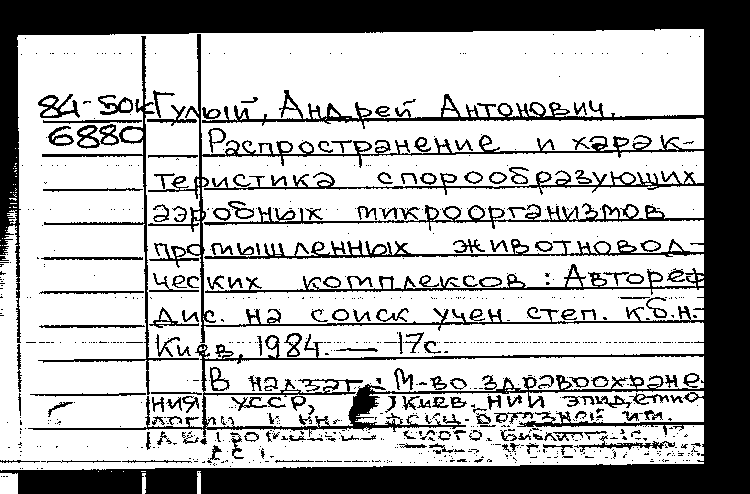 84-50к Гулый, Андрей Антонович.
6880 Распространение и харак-
теристика спорообразующих
аэробных микроорганизмов
промышленных животновод-
ческих комплексов : Автореф
дис. на соиск учен. степ. к.б.н.
Киев, 1984. — 17с.
В надзаг.: М-во здравоохране
ния УССР, Киев. НИИ эпидемио
логии и болезней им.